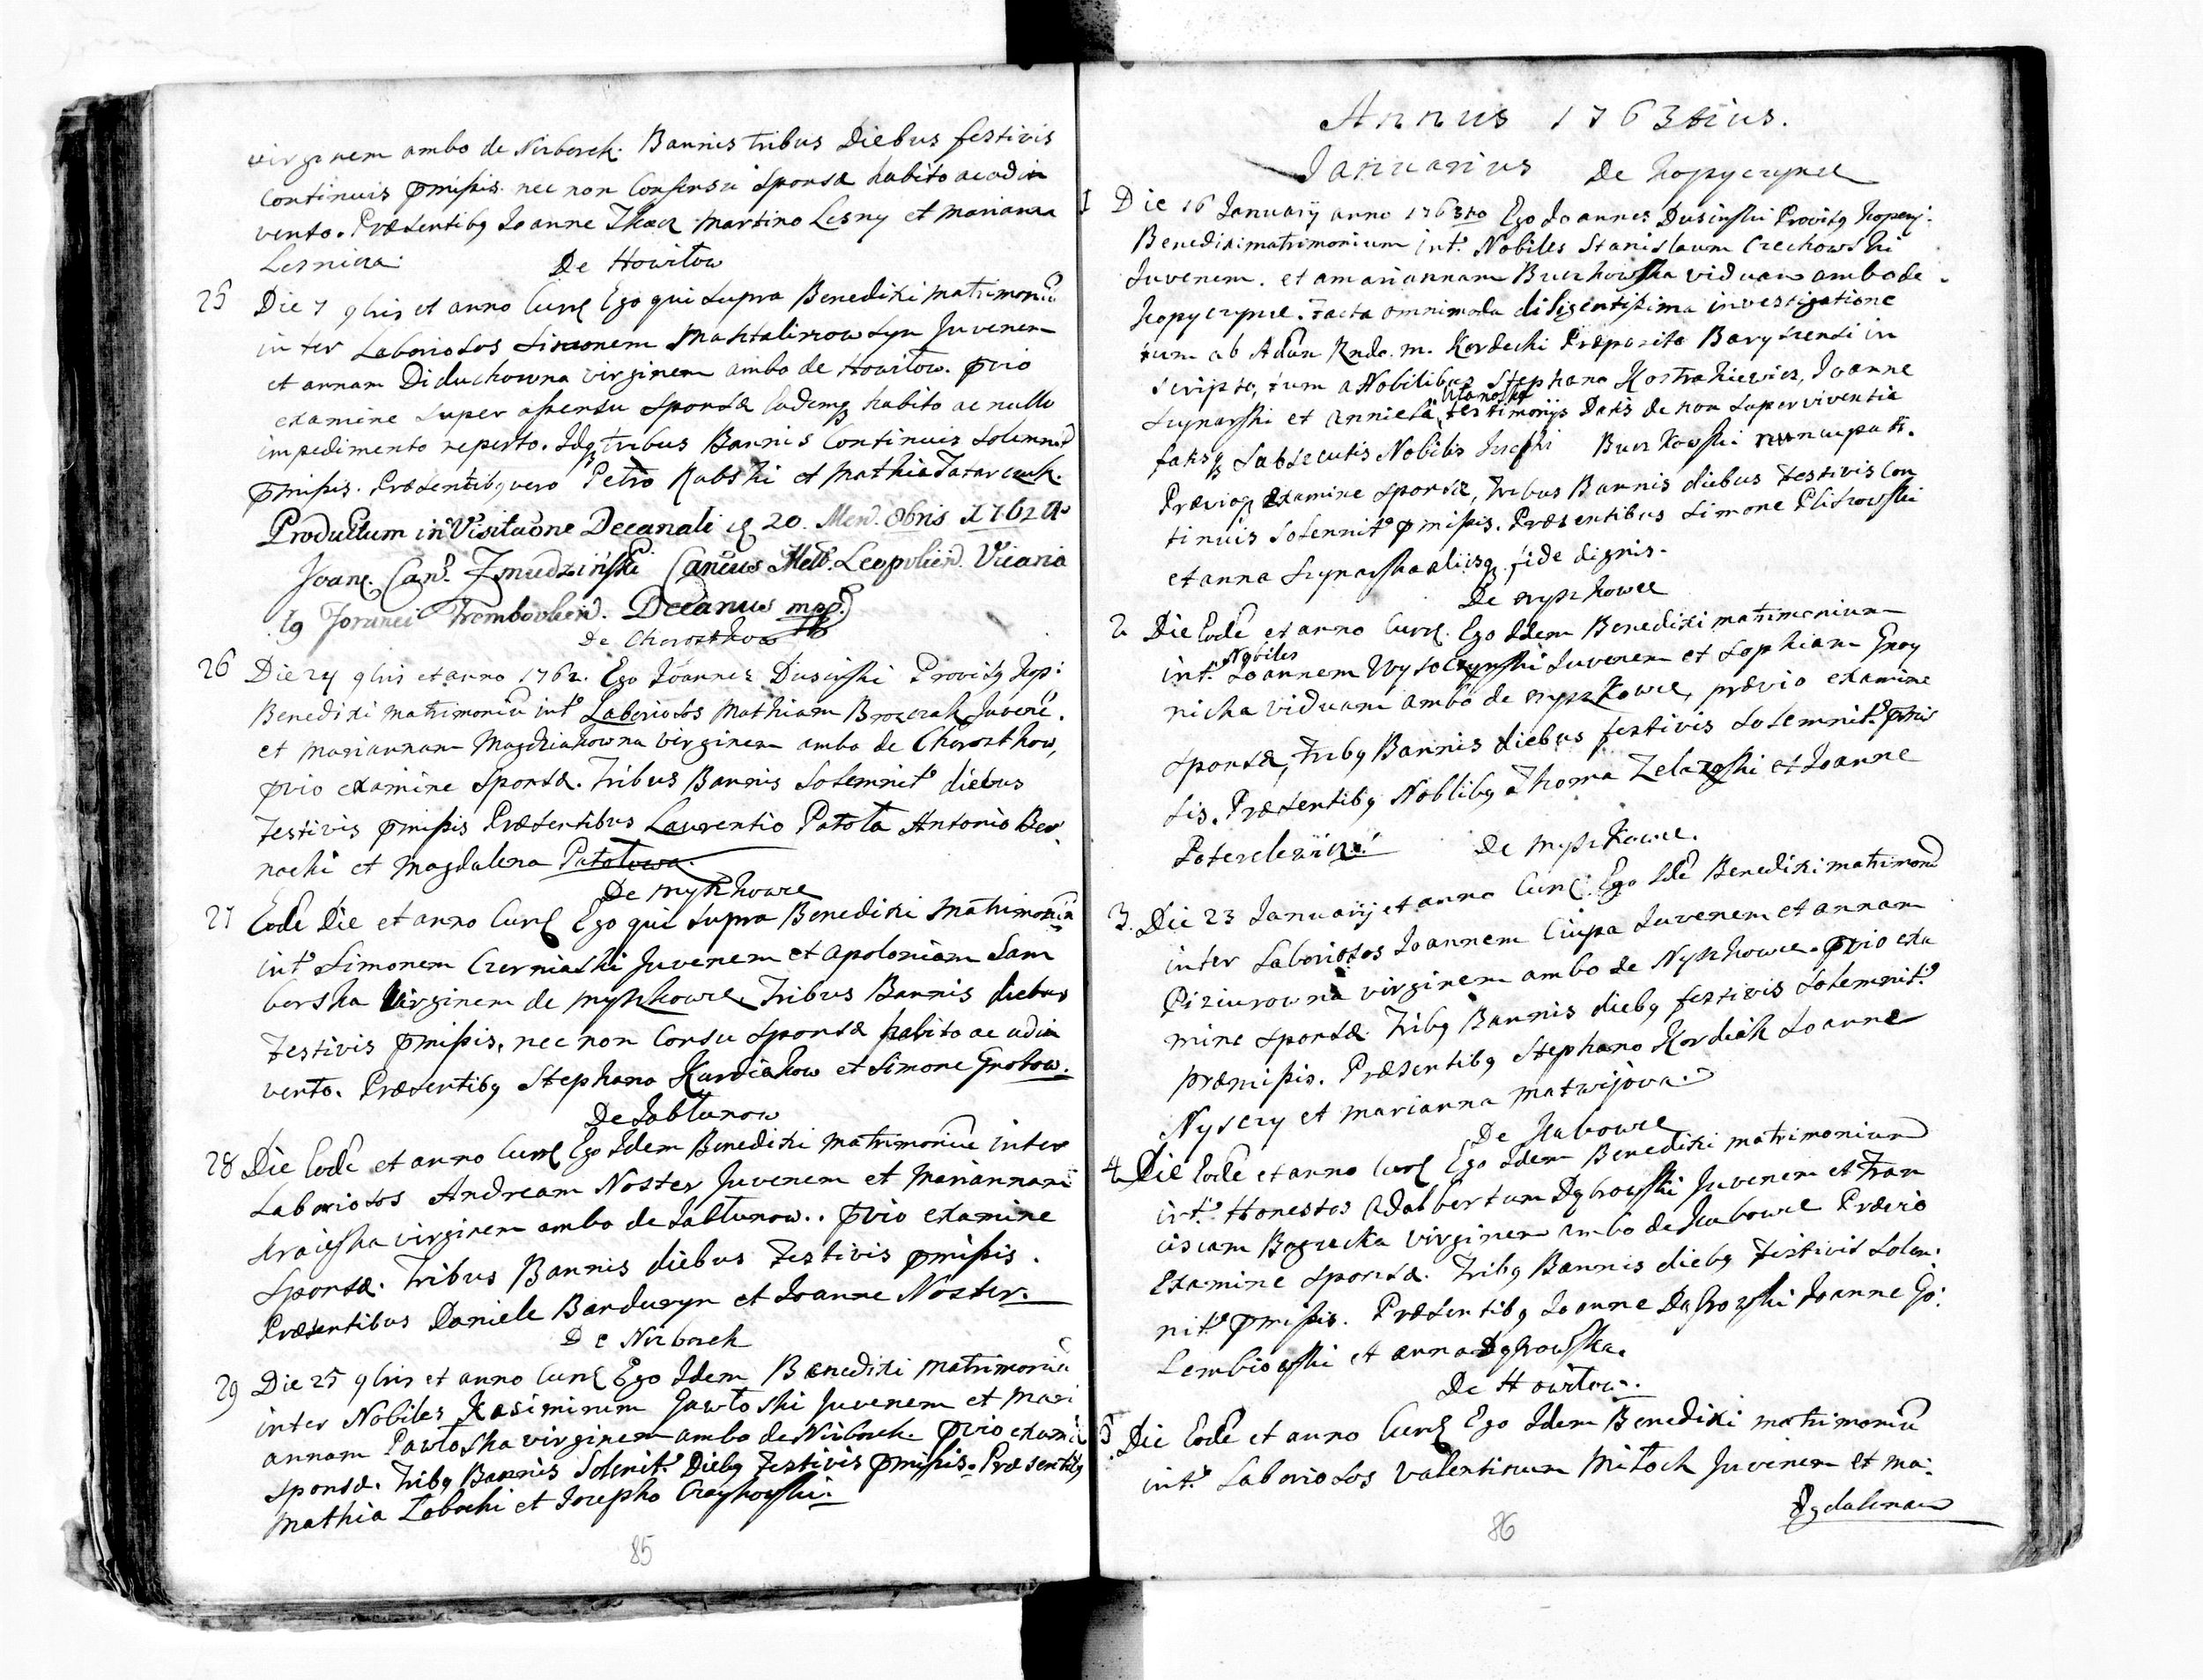 virginem ambo de Nirborek. Bannis tribus Diebus festivis
Continuis pmissis nec non Consensu Sponsæ habito ac adin
vento. Præsentibq Joanne Tkacz Martino Lesny et Marianna
Lesnicza.
De Howiłow
25 Die 7 9bris et anno Curr Ego qui supra Benedixi Matrimoniu
inter Laboriosos Simonem Syn Juvenem
et annam Diduchowna virginem ambo de Howiłow. pvio
examine super assensu Sponsæ ac nullo
impedimento reperto. Idq tribus Bannis Continuis Solemnit
pmissis. Præsentibq vero Petro Rabski et Mathia Tatarczuk.
Productum in Visitaone Decanali 20. Men. 8bris 1762 Ao
Joan. Can. Zmudziński Cancus Mett. Leopolien. Vicario
lg Foranei Trembovlien. Decanus mpp
De Chorostkow
26 Die 24 9bris et anno 1762. Ego Joannes Dusinski Provisq Kop:
Benedixi Matrimoniu int. Laboriosos Mathiam Broczak Juvene.
et Mariannam Magdziakowna virginem ambo de Chorostkow,
pvio examine Sponsæ. Tribus Bannis Solemnit. diebus
festivis pmissis Præsentibus Laurentio Patoła Antonio Ber
nachi et Magdalena Patołowa.
De Myszkowce
27 Eode Die et anno Curr Ego qui supra Benedixi Matrimoniu
int. Simonem Czerniaski Juvenem et Apoloniam Sam
borska Virginem de Myszkowce, Tribus Bannis diebus
festivis pmissis, nec non Consu Sponsæ habito ac adin
vento. Præsentibq Stephano Kurdiakow et Simone Grobow.
De Jabłunow
28 Die Eode et anno Curr Ego Idem Benedixi Matrimoniu inter
Laboriosos Andream Noster Juvenem et Mariannam
Kraieska virginem ambo de Jabłunow.. pvio examine
Sponsæ. Tribus Bannis diebus festivis pmissis.
Præsentibus Daniele Barduzyn et Joanne Noster.
De Nirborek
29 Die 25 9bris et anno Curr Ego Idem Benedixi Matrimoniu
inter Nobiles Kasimirum Jawłoski Juvenem et Mari
annam Pawłoska virginem ambo de Nirborek pvio exami
Sponsæ. Tribq Bannis Solenit. Diebq festivis pmissis. Præsentibq
Mathia Zabocki et Josepho
85
Annus 1763tius.
Januarius De Kopyczynce
1 Die 16 Januarij anno 1763tio Ego Joannes Dusinski Provisq Kopey:
Benedixi matrimonium int. Nobiles Stanislaum Czechowski
Juvenem. et amariannam Burzkowska viduam ambo de
Kopyczynce. Facta omnimoda diligentissima investigatione
tum ab Adum Rndo. m. Kordecki Præposito Barysrensi in
scripto, tum a Nobilibus Stephano Kostrakiewicz, Joanne
Szynarski et Anniela testimonijs Datis de non superviventia
fatisq subsecutis Nobilis Josephi Burzkowski nuncupati.
Prævioq examine Sponsæ, Tribus Bannis diebus festivis Con
tinuis Solennit. pmissis. Præsentibus Simone Plitkowski
et anna Szynarska aliisq fide dignis.
De Myszkowce
2 Die Eode et anno Curr. Ego Idem Benedixi matrimonium
int. Nobiles Joannem Wysoczynski Juvenem et Sophiam Gnoy
nicka viduam ambo de Myszkowce, prævio examine
Sponsæ, Tribq Bannis diebus festivis Solemnit. pmis
sis. Præsentibq Noblibq Thoma Zelazoski et Joanne
Paterclewicz.
De Myszkowce.
3. Die 23 Januarij et anno Curr. Ego Ide Benedixi matrimon
inter Laboriosos Joannem Ciupa Juvenem et annam
Piziurowna virginem ambo de Myszkowce. pvio exa
mine Sponsæ Tribq Bannis diebq festivis Solemnit.
præmissis. Præsentibq Stephano Kordiak Joanne
Nysczy et marianna matwijova.
De Kubowce
4 Die Eode et anno Curr Ego Idem Benedixi matrimonium
int. Honestos Adalbertum Dąbrowski Juvenem et Fran
ciscam Bogucka virginem ambo de Kubowce Prævio
Examine Sponsæ. Tribq Bannis diebq festivis Solem:
nit. pmissis. Præsentibq Joanne Dąbrowski Joanne Go:
lembiowski et anna Dąbrowska.
De Howiłow.
5 Die Eode et anno Curr Ego Idem Benedixi matrimoniu
int. Laboriosos Valentinum Mitoch Juvenem et Ma:
gdalenam
86